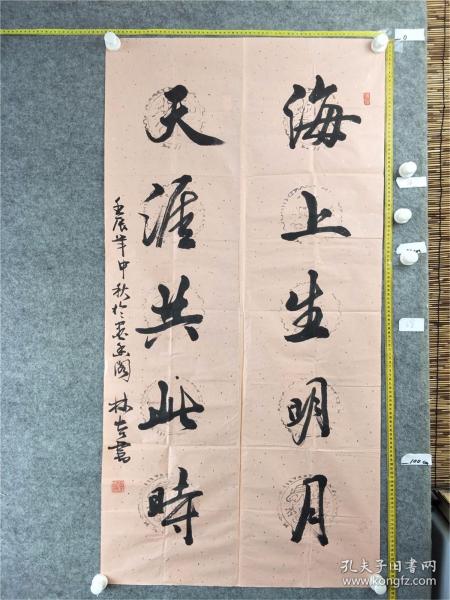 海上生明月
天涯共此時
壬辰年中秋於墨玉阁 林吉書
孔夫子旧书网
www.kongfz.com